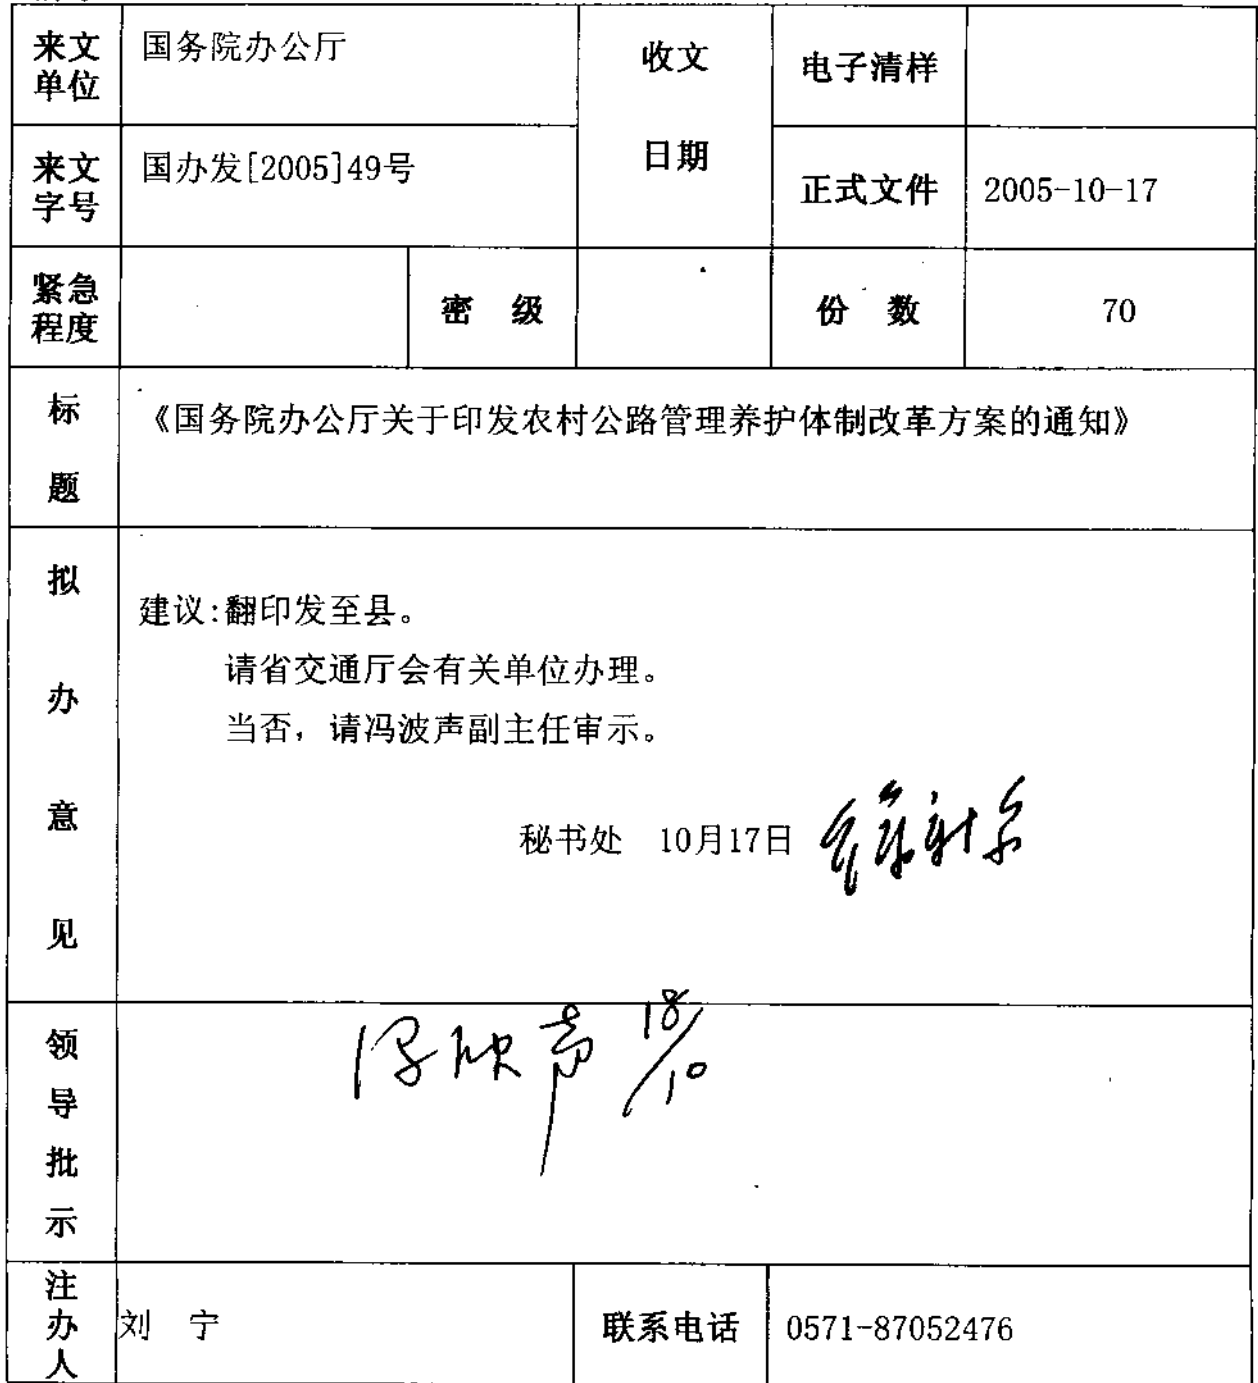 来文单位 国务院办公厅 收文日期 电子清样
来文字号 国办发[2005]49号 正式文件 2005-10-17
紧急程度 密 级 份 数 70
标题 《国务院办公厅关于印发农村公路管理养护体制改革方案的通知》
拟办意见
建议:翻印发至县。
请省交通厅会有关单位办理。
当否，请冯波声副主任审示。
秘书处 10月17日
领导批示 18/10
注办人 刘 宁 联系电话 0571-87052476